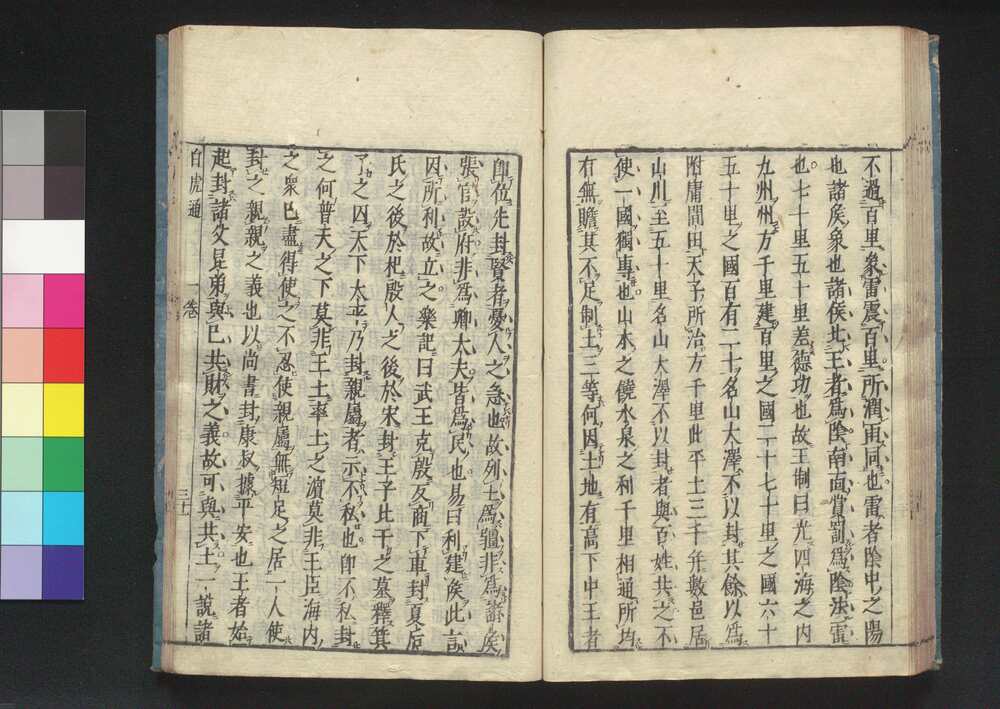 不過百里象雷震百里所潤雨同也雷者陰中之陽
也諸矦象也諸侯北王者爲陰南面賞罰爲陰法雷
也七十里五十里差德功也故王制曰光四海之内
九州州方千里建百里之國二十七十里之國六十
五十里之國百有二十名山大澤不以封其餘以爲
附庸間田天子所治方千里此平土三千幷數邑居
山川至五十里名山大澤不以封者與百姓共之不
使一國獨專也山木之饒水泉之利千里相通所均
有無贍其不足制土三等何因土地有高下中王者
即位先封賢者憂人之急也故列土爲疆非爲諸矦
張官設府非爲卿大夫皆爲民也易曰利建矦此言
因所利故立之樂記曰武王克殷反商下車封夏后
氏之後於杞殷人之後於宋封王子比干之墓釋箕
之囚天下太平乃封親屬者示不私也卽不私封
之何普天之下莫非王土率土之濵莫非王臣海内
之衆已盡得使之不忍使親屬無短足之居一人使
封之親親之義也以尚書封康叔據平安也王者始
起封諸父昆弟與己共財之義故可與共土一說諸
白虎通 一巻 三十